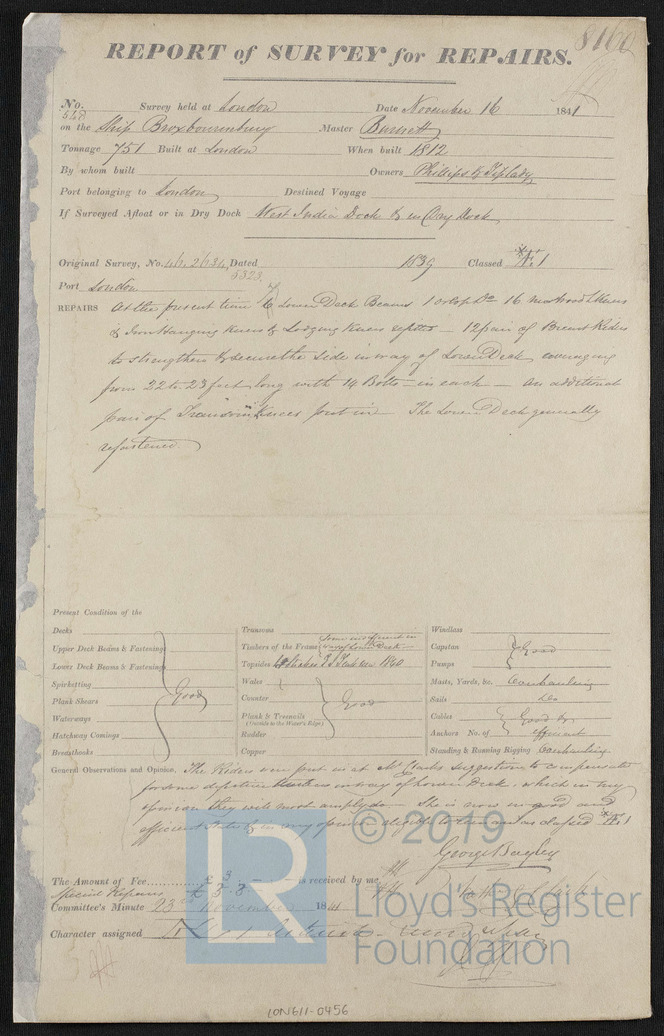 8160
REPORT of SURVEY for REPAIRS.
No. 548 Survey held at London Date November 16 1841
on the Ship Broxbournebury Master Burnett
Tonnage 751 Built at London When built 1812
By whom built Owners Phillips & Tiplady
Port belonging to London Destined Voyage
If Surveyed Afloat or in Dry Dock West India Dock & in Dry Dock
Original Survey, No. Dated 1839 Classed Æ 1
Port London
REPAIRS At the present time 6 Lower Deck Beams 1 orlop Do 16 new wood Knees
& Iron Hanging Knees & Lodging Knees refitted — 12 pair of Breast Riders
to strengthen & secure the side in way of Lower Deck averaging
from 22 to 23 feet long with 14 Bolts in each — An additional
pair of Transom Knees put in — The Lower Deck generally
refastened.
Present Condition of the
Decks
Upper Deck Beams & Fastenings
Lower Deck Beams & Fastenings
Spirketting
Plank Shears
Waterways
Hatchway Comings
Breasthooks
Good
Transoms
Timbers of the Frame some indifferent in way of Lower Deck
Topsides 1840
Wales
Counter
Plank & Treenails
(Outside to the Water's Edge)
Rudder
Copper
Good
Windlass
Capstan
Pumps
Good
Masts, Yards, &c. Overhauling
Sails Do
Cables
Anchors No. of
Good & efficient
Standing & Running Rigging Overhauling
General Observations and Opinion, The Riders were put in at Mr Clarks suggestion to compensate
for some defective timbers in way of Lower Deck, which in my
opinion they will most amply do — She is now in good and
efficient state & in my opinion eligible to remain as classed Æ 1
George Bayley
The Amount of Fee £ 3 is received by me,
Special Repairs £ 3. 3. —
Committee's Minute 23 November 1841
Character assigned
© 2019
LR
Lloyd's Register
Foundation
LON611-0456